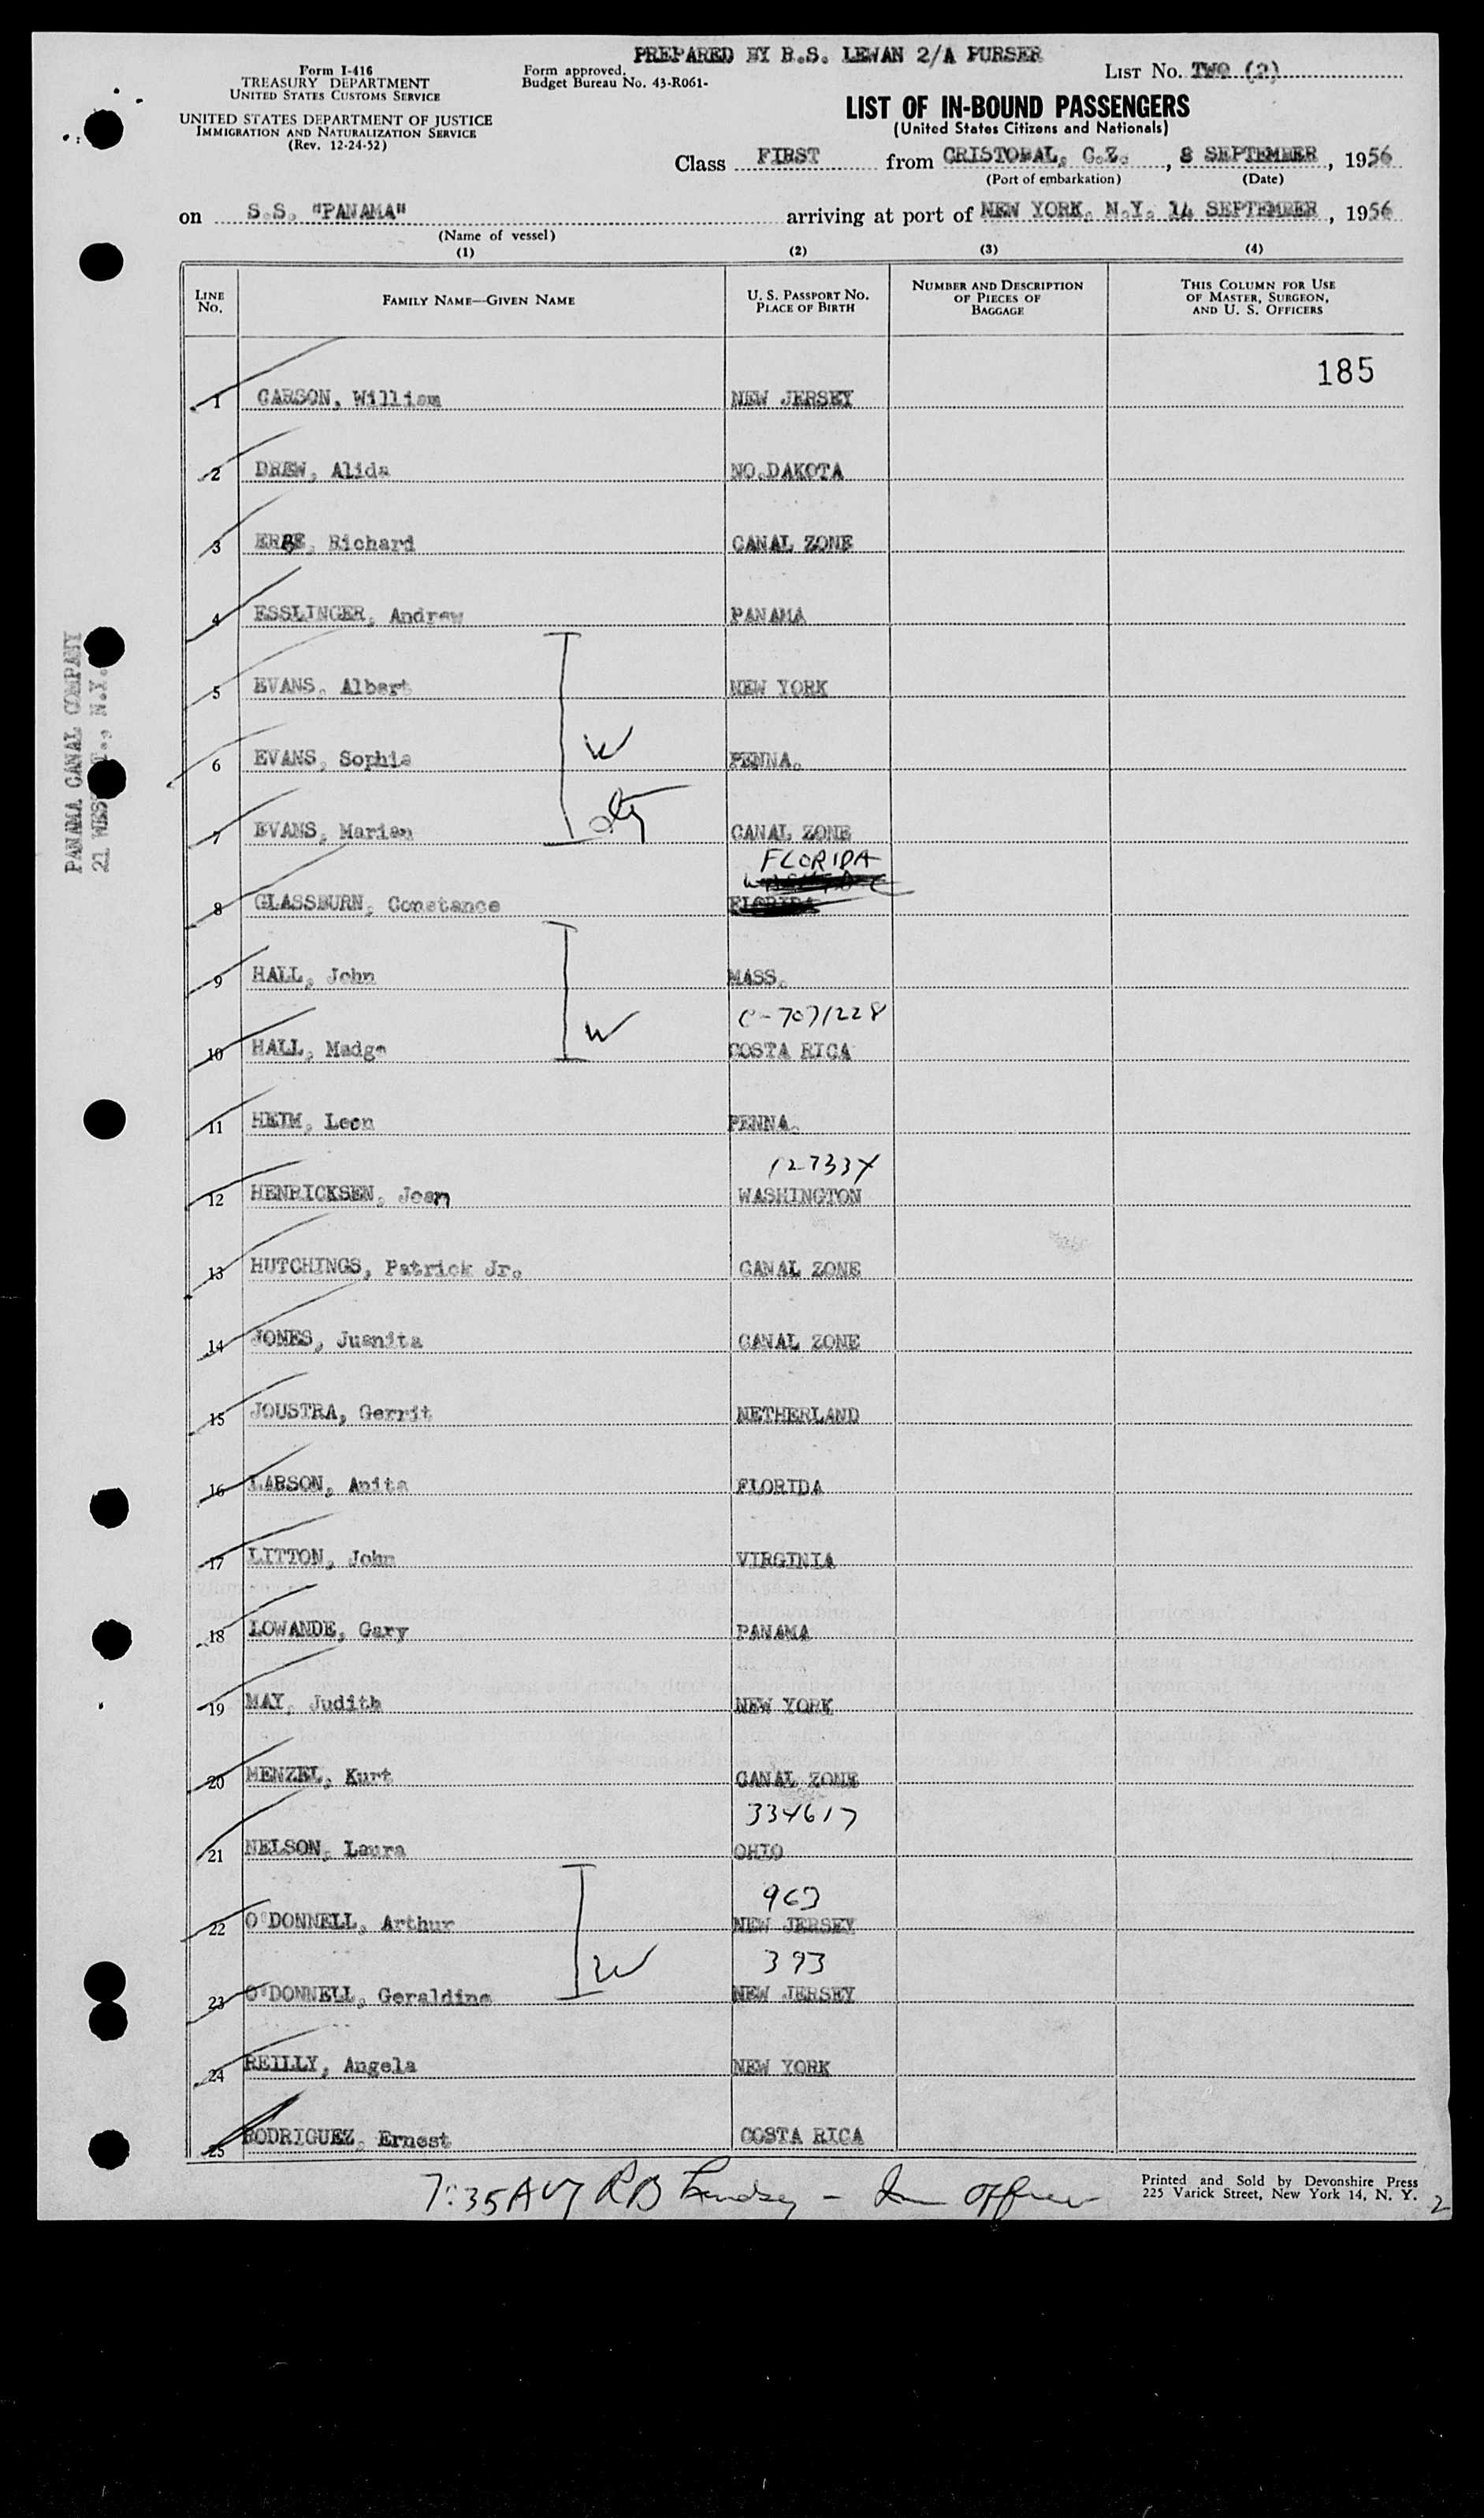 PREPARED BY R.S. LEWAN 2/A PURSER
Form I-416
TREASURY DEPARTMENT
UNITED STATES CUSTOMS SERVICE
UNITED STATES DEPARTMENT OF JUSTICE
IMMIGRATION AND NATURALIZATION SERVICE
(Rev. 12-24-52)
Form approved.
Budget Bureau No. 43-R061-
LIST NO. TWO (2)
LIST OF IN-BOUND PASSENGERS
(United States Citizens and Nationals)
Class FIRST from CRISTOBAL, C.Z., 8 SEPTEMBER, 1956
(Port of embarkation) (Date)
on S.S. "PANAMA" arriving at port of NEW YORK, N.Y. 14 SEPTEMBER, 1956
(Name of vessel)
(1) (2) (3) (4)
LINE NO. FAMILY NAME—GIVEN NAME U. S. PASSPORT NO. PLACE OF BIRTH NUMBER AND DESCRIPTION OF PIECES OF BAGGAGE THIS COLUMN FOR USE OF MASTER, SURGEON, AND U. S. OFFICERS
185
1 CARSON, William NEW JERSEY
2 DREW, Alida NO.DAKOTA
3 ERBE, Richard CANAL ZONE
4 ESSLINGER, Andrew PANAMA
5 EVANS, Albert NEW YORK
6 EVANS, Sophie PENNA.
W
7 EVANS, Marian CANAL ZONE
FLORIDA
8 GLASSBURN, Constance FLORIDA
9 HALL, John MASS.
C-7071228
10 HALL, Madge COSTA RICA
W
11 HEIM, Leon PENNA.
127334
12 HENRICKSEN, Joan WASHINGTON
13 HUTCHINGS, Patrick Jr. CANAL ZONE
14 JONES, Juanita CANAL ZONE
15 JOUSTRA, Gerrit NETHERLAND
16 LARSON, Anita FLORIDA
17 LITTON, John VIRGINIA
18 LOWANDE, Gary PANAMA
19 MAY, Judith NEW YORK
20 MENZEL, Kurt CANAL ZONE
334617
21 NELSON, Laura OHIO
963
22 O'DONNELL, Arthur NEW JERSEY
W
393
23 O'DONNELL, Geraldine NEW JERSEY
24 REILLY, Angela NEW YORK
25 RODRIGUEZ, Ernest COSTA RICA
7:35 AM RB Lindsey - Im Officer
Printed and Sold by Devonshire Press
225 Varick Street, New York 14, N. Y.
2
PANAMA CANAL COMPANY
21 WEST ST., N.Y.